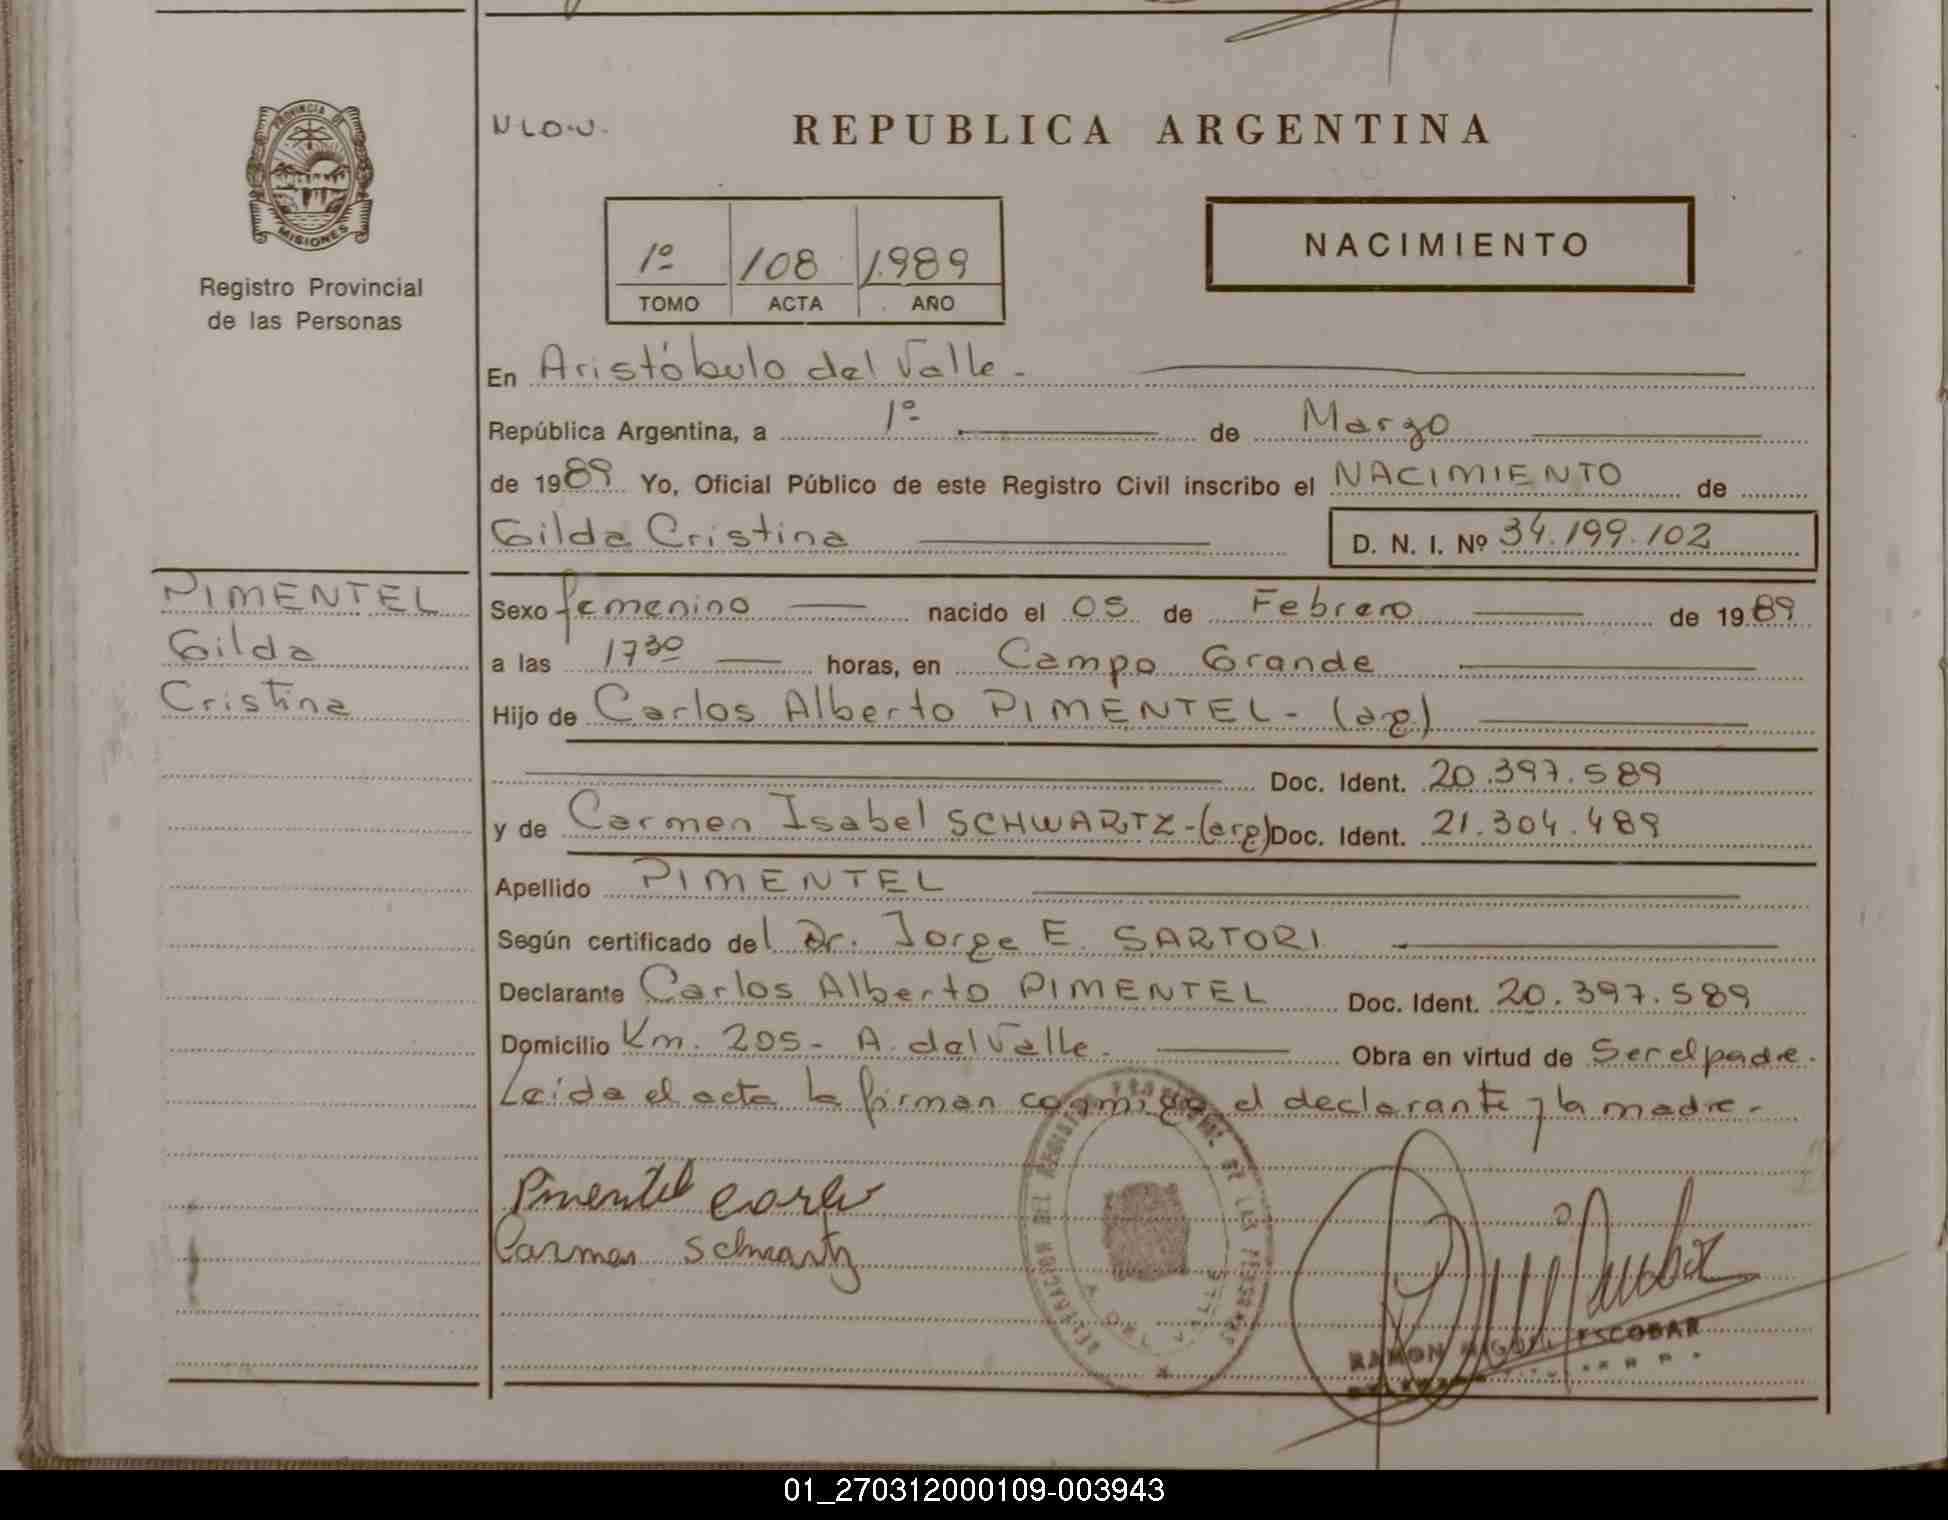 PROVINCIA DE
MISIONES
Registro Provincial
de las Personas
N L O.U.
REPUBLICA ARGENTINA
1º 108 1989
TOMO ACTA AÑO
NACIMIENTO
En Aristóbulo del Valle.
República Argentina, a 1º de Marzo
de 1989 Yo, Oficial Público de este Registro Civil inscribo el NACIMIENTO de
Gilda Cristina D. N. I. Nº 34.199.102
PIMENTEL
Gilda
Cristina
Sexo femenino nacido el 05 de Febrero de 1989
a las 17 30 horas, en Campo Grande
Hijo de Carlos Alberto PIMENTEL - (arg.)
Doc. Ident. 20.397.589
y de Carmen Isabel SCHWARTZ - (arg) Doc. Ident. 21.304.489
Apellido PIMENTEL
Según certificado del Dr. Jorge E. SARTORI
Declarante Carlos Alberto PIMENTEL Doc. Ident. 20.397.589
Domicilio Km. 205 - A. del Valle. Obra en virtud de Ser el padre.
Leida el acta la firman conmigo el declarante y la madre.
Pimentel Carlos
Carmen Schwartz
DELEGACION DEL REGISTRO PROVINCIAL DE LAS PERSONAS
A. DEL VALLE
RAMON MIGUEL ESCOBAR
01_270312000109-003943